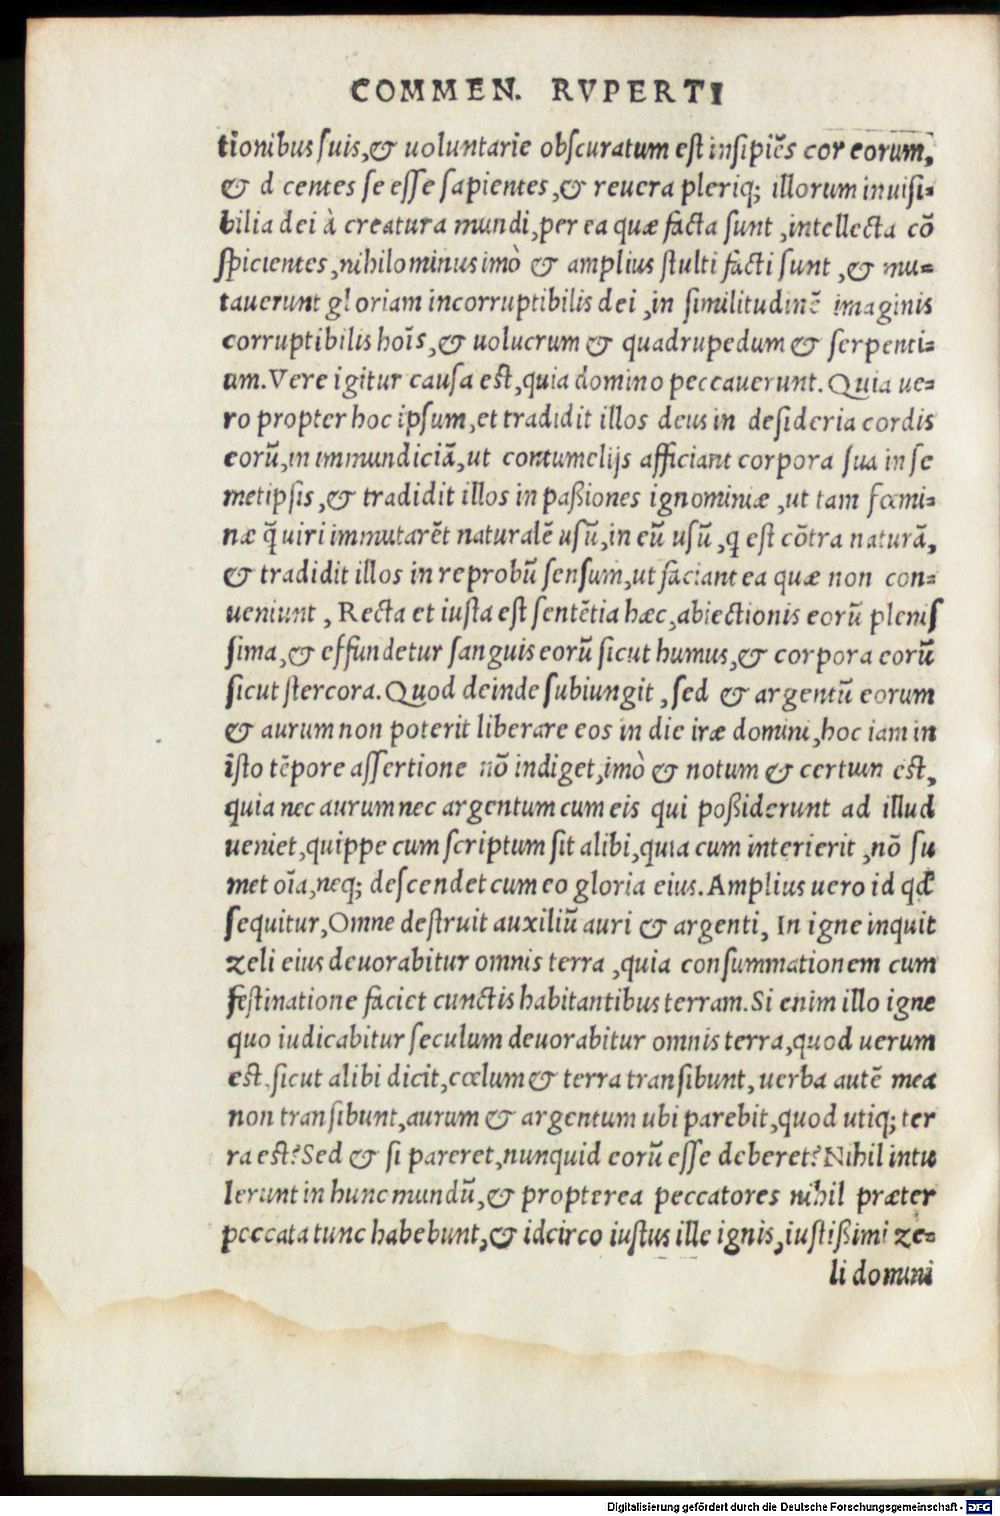 COMMEN. RVPERTI
tionibus suis,& uoluntarie obscuratum est insipiẽs cor eorum,
& d centes se esse sapientes,& reuera pleriq; illorum inuisi=
bilia dei à creatura mundi,per ea quæ facta sunt ,intellecta cõ
spicientes,nihilominus imò & amplius stulti facti sunt ,& mu=
tauerunt gloriam incorruptibilis dei ,in similitudinẽ imaginis
corruptibilis hoĩs,& uolucrum & quadrupedum & serpenti=
um.Vere igitur causa est,quia domino peccauerunt.Quia ue=
ro propter hoc ipsum,et tradidit illos deus in desideria cordis
eorũ,in immundiciã,ut contumelijs afficiant corpora sua in se
metipsis,& tradidit illos in paßiones ignominiæ ,ut tam fœmi=
næ q̃ uiri immutarẽt naturalẽ usũ,in eũ usũ ,q est cõtra naturã,
& tradidit illos in reprobũ sensum,ut faciant ea quæ non con=
ueniunt , Recta et iusta est sentẽtia hæc,abiectionis eorũ plenis
sima,& effundetur sanguis eorũ sicut humus,& corpora eorũ
sicut stercora.Quod deinde subiungit ,sed & argentũ eorum
& aurum non poterit liberare eos in die iræ domini,hoc iam in
isto tẽpore assertione nõ indiget,imò & notum & certum est,
quia nec aurum nec argentum cum eis qui poßiderunt ad illud
ueniet,quippe cum scriptum sit alibi,quia cum interierit ,nõ su
met oĩa,neq; descendet cum eo gloria eius.Amplius uero id qđ
sequitur,Omne destruit auxiliũ auri & argenti, In igne inquit
zeli eius deuorabitur omnis terra ,quia consummationem cum
festinatione faciet cunctis habitantibus terram.Si enim illo igne
quo iudicabitur seculum deuorabitur omnis terra,quod uerum
est,sicut alibi dicit,cœlum & terra transibunt,uerba autẽ mea
non transibunt,aurum & argentum ubi parebit,quod utiq; ter
ra est?Sed & si pareret,nunquid eorũ esse deberet?Nihil intu
lerunt in hunc mundũ,& propterea peccatores nihil præter
peccata tunc habebunt,& idcirco iustus ille ignis,iustißimi ze=
li domini
Digitalisierung gefördert durch die Deutsche Forschungsgemeinschaft - DFG